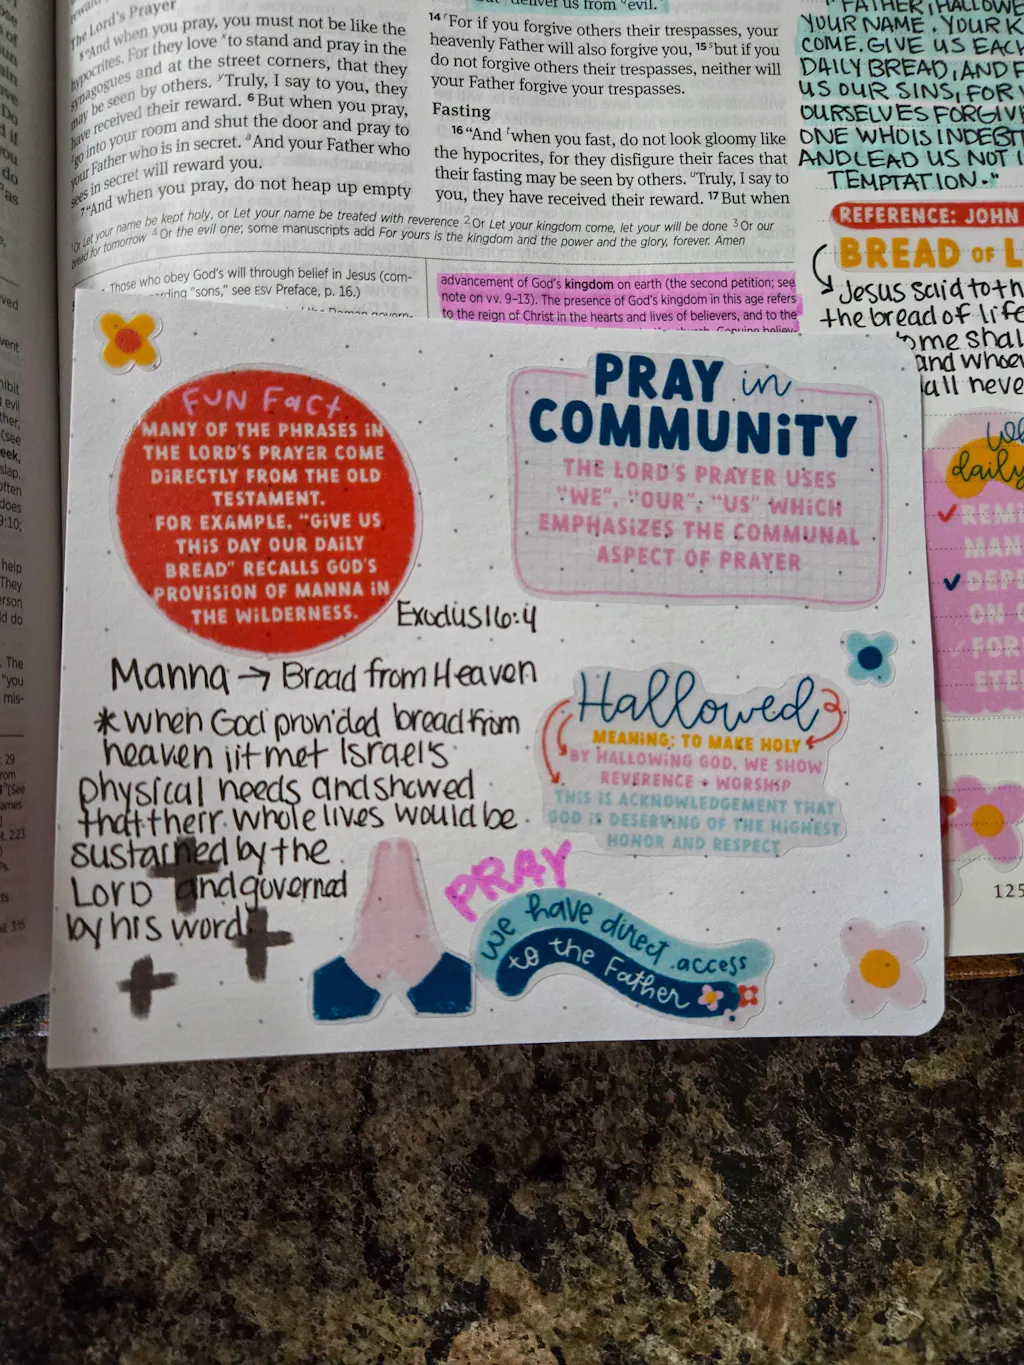 The Lord's Prayer
5 "And when you pray, you must not be like the
hypocrites. For they love x to stand and pray in the
synagogues and at the street corners, that they
may be seen by others. y Truly, I say to you, they
have received their reward. 6 But when you pray,
z go into your room and shut the door and pray to
your Father who is in secret. a And your Father who
sees in secret will reward you.
7 "And when you pray, do not heap up empty
deliver us from u evil.
14 r For if you forgive others their trespasses, your
heavenly Father will also forgive you, 15 s but if you
do not forgive others their trespasses, neither will
your Father forgive your trespasses.
Fasting
16 "And t when you fast, do not look gloomy like
the hypocrites, for they disfigure their faces that
their fasting may be seen by others. u Truly, I say to
you, they have received their reward. 17 But when
1 Or Let your name be kept holy, or Let your name be treated with reverence 2 Or Let your kingdom come, let your will be done 3 Or our
bread for tomorrow 4 Or the evil one; some manuscripts add For yours is the kingdom and the power and the glory, forever. Amen
Those who obey God's will through belief in Jesus (com-
"sons," see ESV Preface, p. 16.)
advancement of God's kingdom on earth (the second petition; see
note on vv. 9–13). The presence of God's kingdom in this age refers
to the reign of Christ in the hearts and lives of believers, and to the
"FATHER, HALLOWE
YOUR NAME. YOUR K
COME. GIVE US EACH
DAILY BREAD, AND F
US OUR SINS, FOR
OURSELVES FORGIVE
ONE WHO IS INDEBT
AND LEAD US NOT I
TEMPTATION."
REFERENCE: JOHN
BREAD OF L
Jesus said to th
the bread of life
ome shal
and whoev
all neve
daily
REM
MAN
DEP
ON
FOR
ETE
125
FUN Fact
MANY OF THE PHRASES iN
THE LORD'S PRAYER COME
DiRECTLY FROM THE OLD
TESTAMENT.
FOR EXAMPLE, "GiVE US
THiS DAY OUR DAiLY
BREAD" RECALLS GOD'S
PROViSiON OF MANNA iN
THE WiLDERNESS.
Exodus 16:4
PRAY in
COMMUNiTY
THE LORD'S PRAYER USES
"WE", "OUR", "US" WHiCH
EMPHASiZES THE COMMUNAL
ASPECT OF PRAYER
Manna → Bread from Heaven
*when God provided bread from
heaven, it met Israel's
physical needs and showed
that their whole lives would be
sustained by the
LORD and governed
by his word.
Hallowed
MEANiNG: TO MAKE HOLY
BY HALLOWiNG GOD, WE SHOW
REVERENCE + WORSHiP
THiS iS ACKNOWLEDGEMENT THAT
GOD iS DESERViNG OF THE HiGHEST
HONOR AND RESPECT
PRAY
we have direct access
to the Father